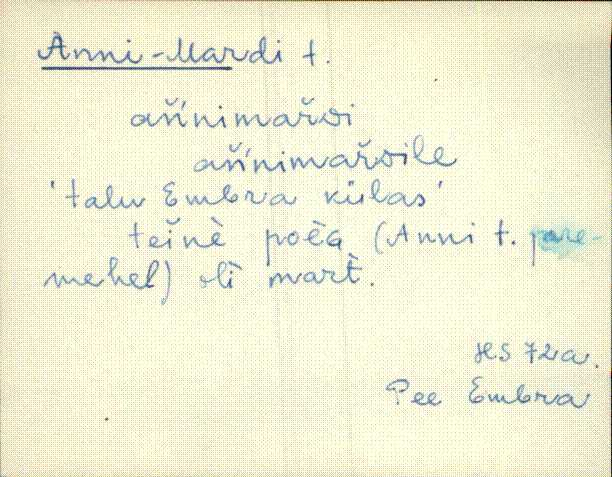 Anni-Mardi t.
ańńimaŕdi
ańńimaŕdile
'talu Embra külas'
teińe poĕG (Anni t. pere-
mehel) olì marť.
HS 72a.
Pee Embra